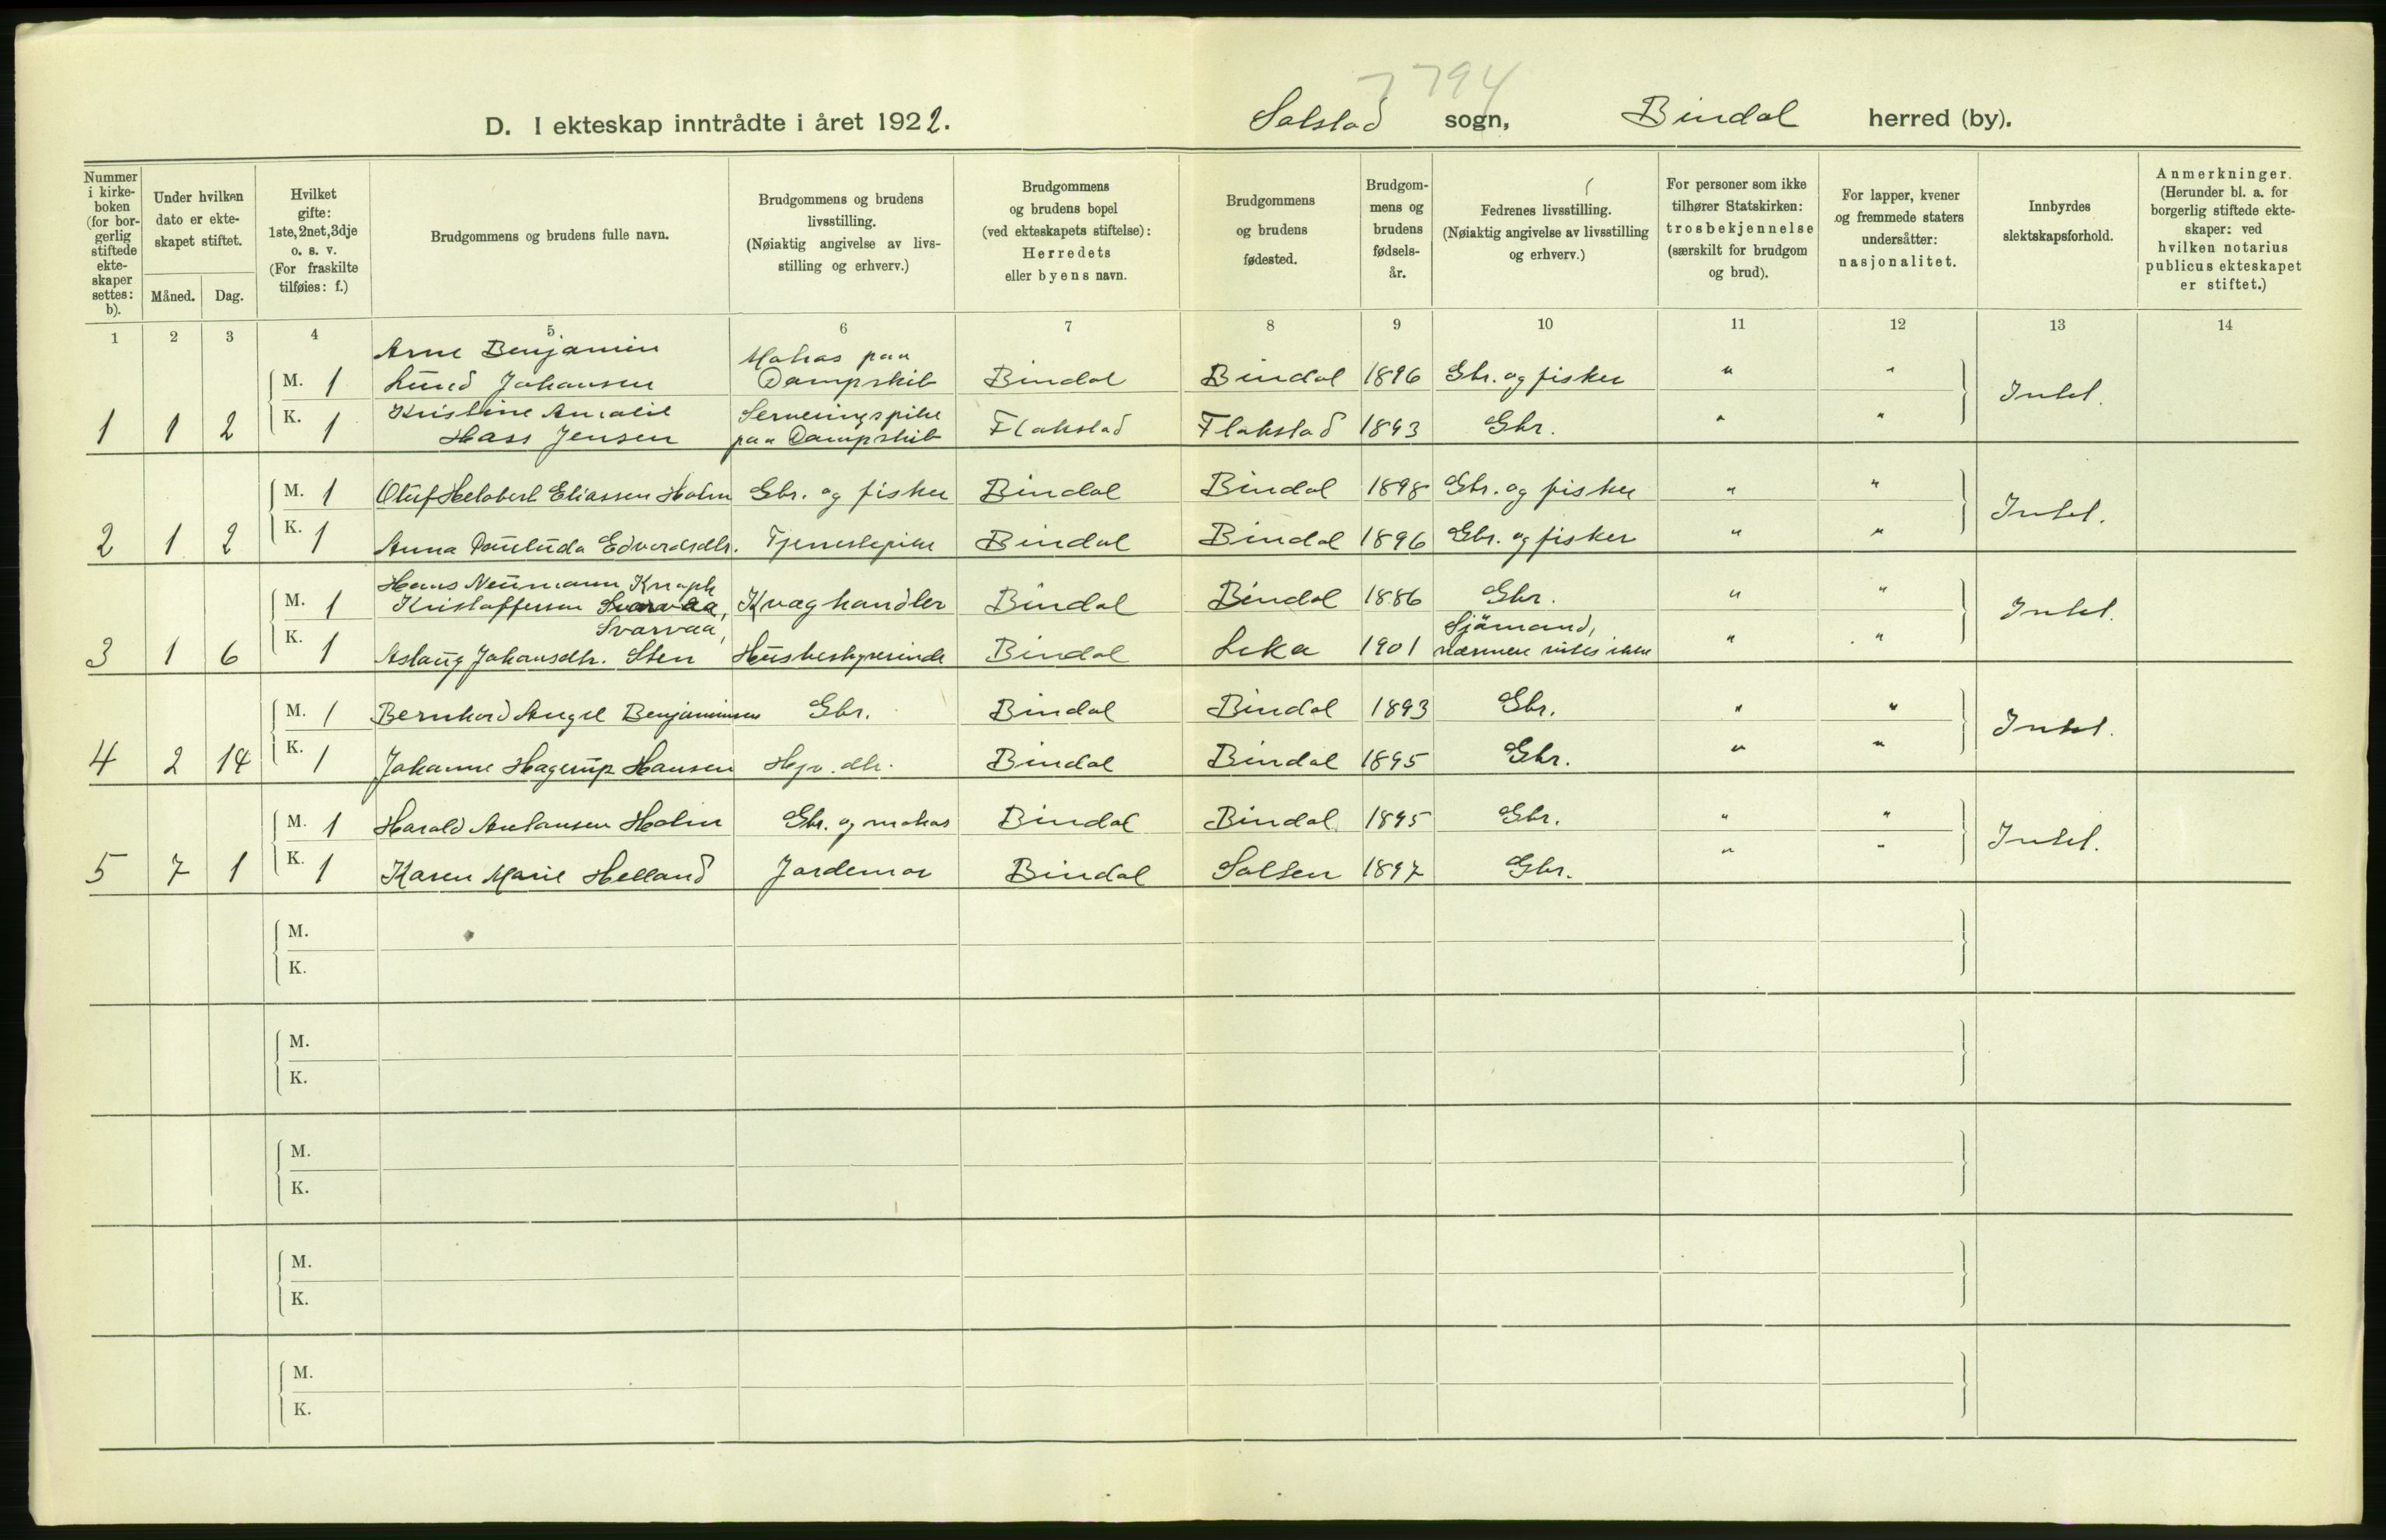 7794
D. I ekteskap inntrådte i året 1922. Solstad sogn, Bindal herred (by).
Nummer i kirke-boken (for bor-gerlig stiftede ekte-skaper settes: b).
Under hvilken dato er ekte-skapet stiftet.
Måned. Dag.
Hvilket gifte: 1ste, 2net, 3dje o. s. v. (For fraskilte tilføies: f.)
Brudgommens og brudens fulle navn.
Brudgommens og brudens livsstilling. (Nøiaktig angivelse av livs-stilling og erhverv.)
Brudgommens og brudens bopel (ved ekteskapets stiftelse): Herredets eller byens navn.
Brudgommens og brudens fødested.
Brudgom-mens og brudens fødsels-år.
Fedrenes livsstilling. (Nøiaktig angivelse av livsstilling og erhverv.)
For personer som ikke tilhører Statskirken: trosbekjennelse (særskilt for brudgom og brud).
For lapper, kvener og fremmede staters undersåtter: nasjonalitet.
Innbyrdes slektskapsforhold.
Anmerkninger. (Herunder bl. a. for borgerlig stiftede ekte-skaper: ved hvilken notarius publicus ekteskapet er stiftet.)
1 2 3 4 5 6 7 8 9 10 11 12 13 14
M. 1 Arne Benjamin Lund Johansen Matros paa Dampskib Bindal Bindal 1896 Gbr. og fisker " " Intet.
1 1 2 K. 1 Kristine Amalie Hass Jensen Serveringspike paa Dampskib Flakstad Flakstad 1893 Gbr. " "
M. 1 Oluf Eliassen Holm Gbr. og fisker Bindal Bindal 1898 Gbr. og fisker " " Intet.
2 1 2 K. 1 Anna Edvardsdtr. Tjenestepike Bindal Bindal 1896 Gbr. og fisker " "
M. 1 Hans Neumann Knaph Kristoffersen Svarvaa, Kvæghandler Bindal Bindal 1886 Gbr. " " Intet.
3 1 6 K. 1 Svarvaa, Aslaug Johansdtr. Sten Husbestyrerinde Bindal Leka 1901 Sjømand, nærmere vites ikke " "
M. 1 Bernhard Angel Benjaminsen Gbr. Bindal Bindal 1893 Gbr. " " Intet.
4 2 14 K. 1 Johanne Hagerup Hansen Hjv. dtr. Bindal Bindal 1895 Gbr. " "
M. 1 Harald Antonsen Holm Gbr. og matros Bindal Bindal 1895 Gbr. " " Intet.
5 7 1 K. 1 Karen Marie Helland Jordemor Bindal Salten 1897 Gbr. " "
M.
K.
M.
K.
M.
K.
M.
K.
M.
K.